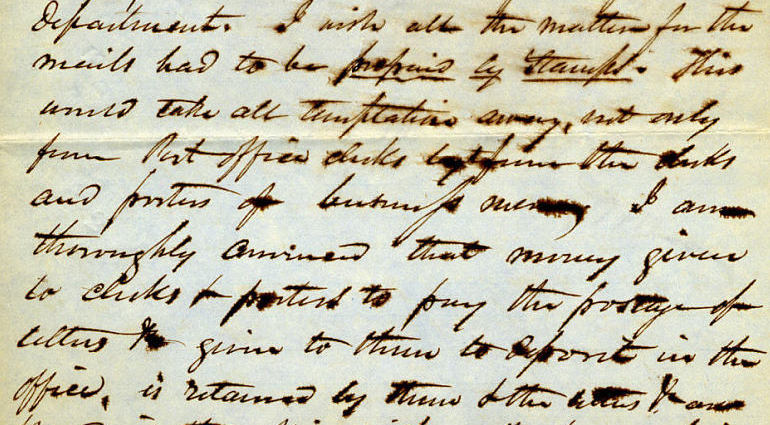 Department. I wish all the matter for the
mails had to be prepaid by Stamps. This
would take all temptation away, not only
from Post office clerks but from the clerks
and porters of business men, I am
thoroughly convinced that money given
to clerks & porters to pay the postage of
letters given to them to deposit in the
office, is retained by them & the letters